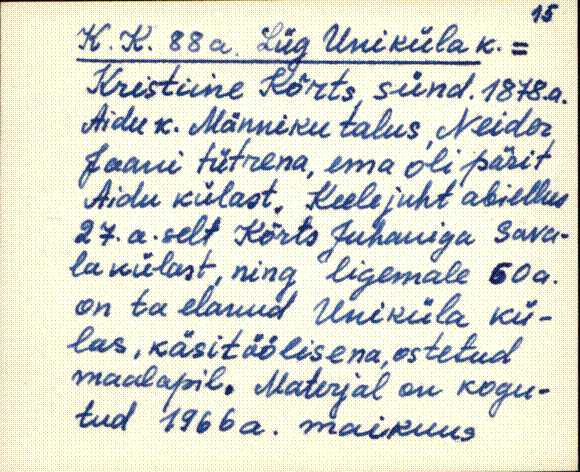 15
K. K. 88 a. Lüg Uniküla k. =
Kristiine Kõrts, sünd. 1878.a.
Aidu k. Männiku talus, Neider
Jaani tütrena, ema oli pärit
Aidu külast. Keelejuht abiellus
27.a.selt Kõrts Juhaniga Sava-
la külast, ning ligemale 60 a.
on ta elanud Uniküla kü-
las, käsitöölisena, ostetud
maalapil. Materjal on kogu-
tud 1966 a. maikuus